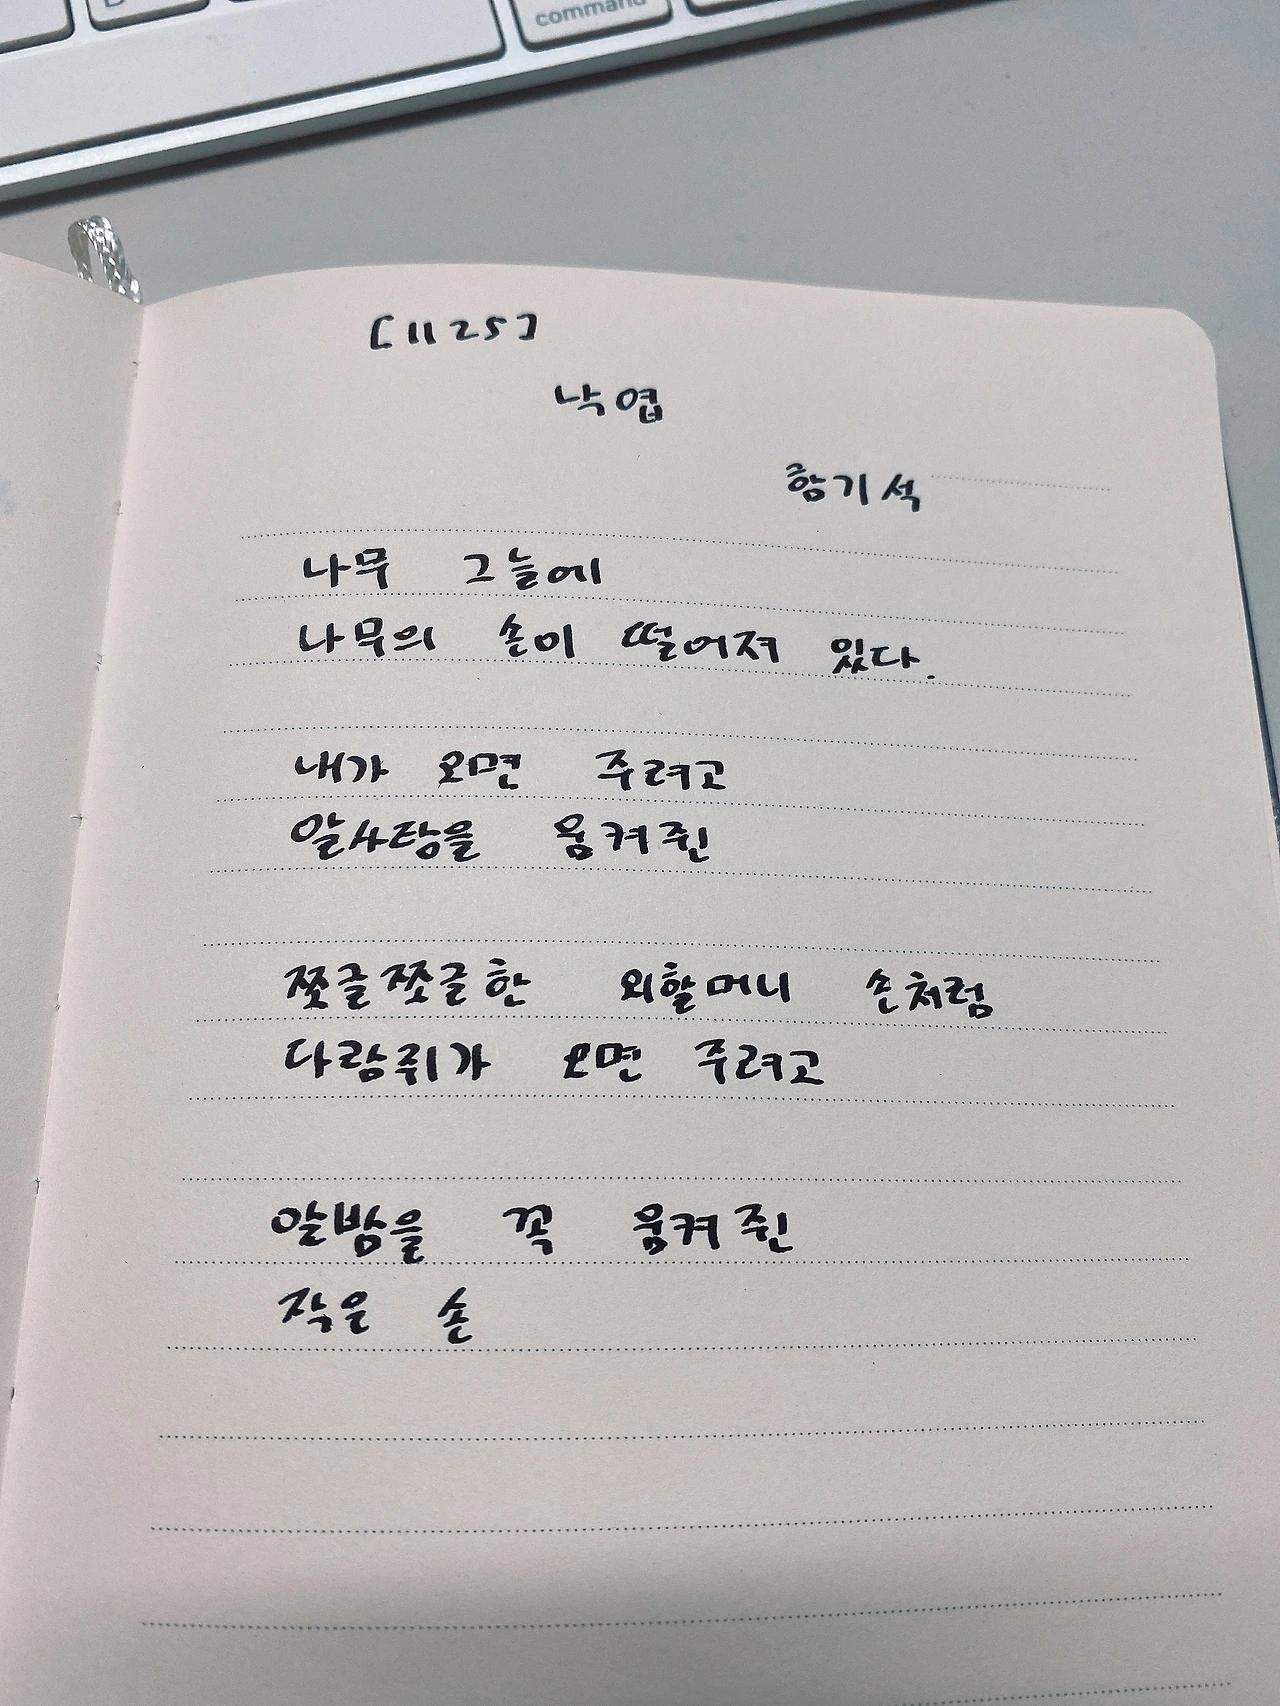 command
[1125]
낙엽
함기석
나무 그늘에
나무의 손이 떨어져 있다.
내가 오면 주려고
알사탕을 움켜쥔
쪼글쪼글한 외할머니 손처럼
다람쥐가 오면 주려고
알밤을 꼭 움켜쥔
작은 손